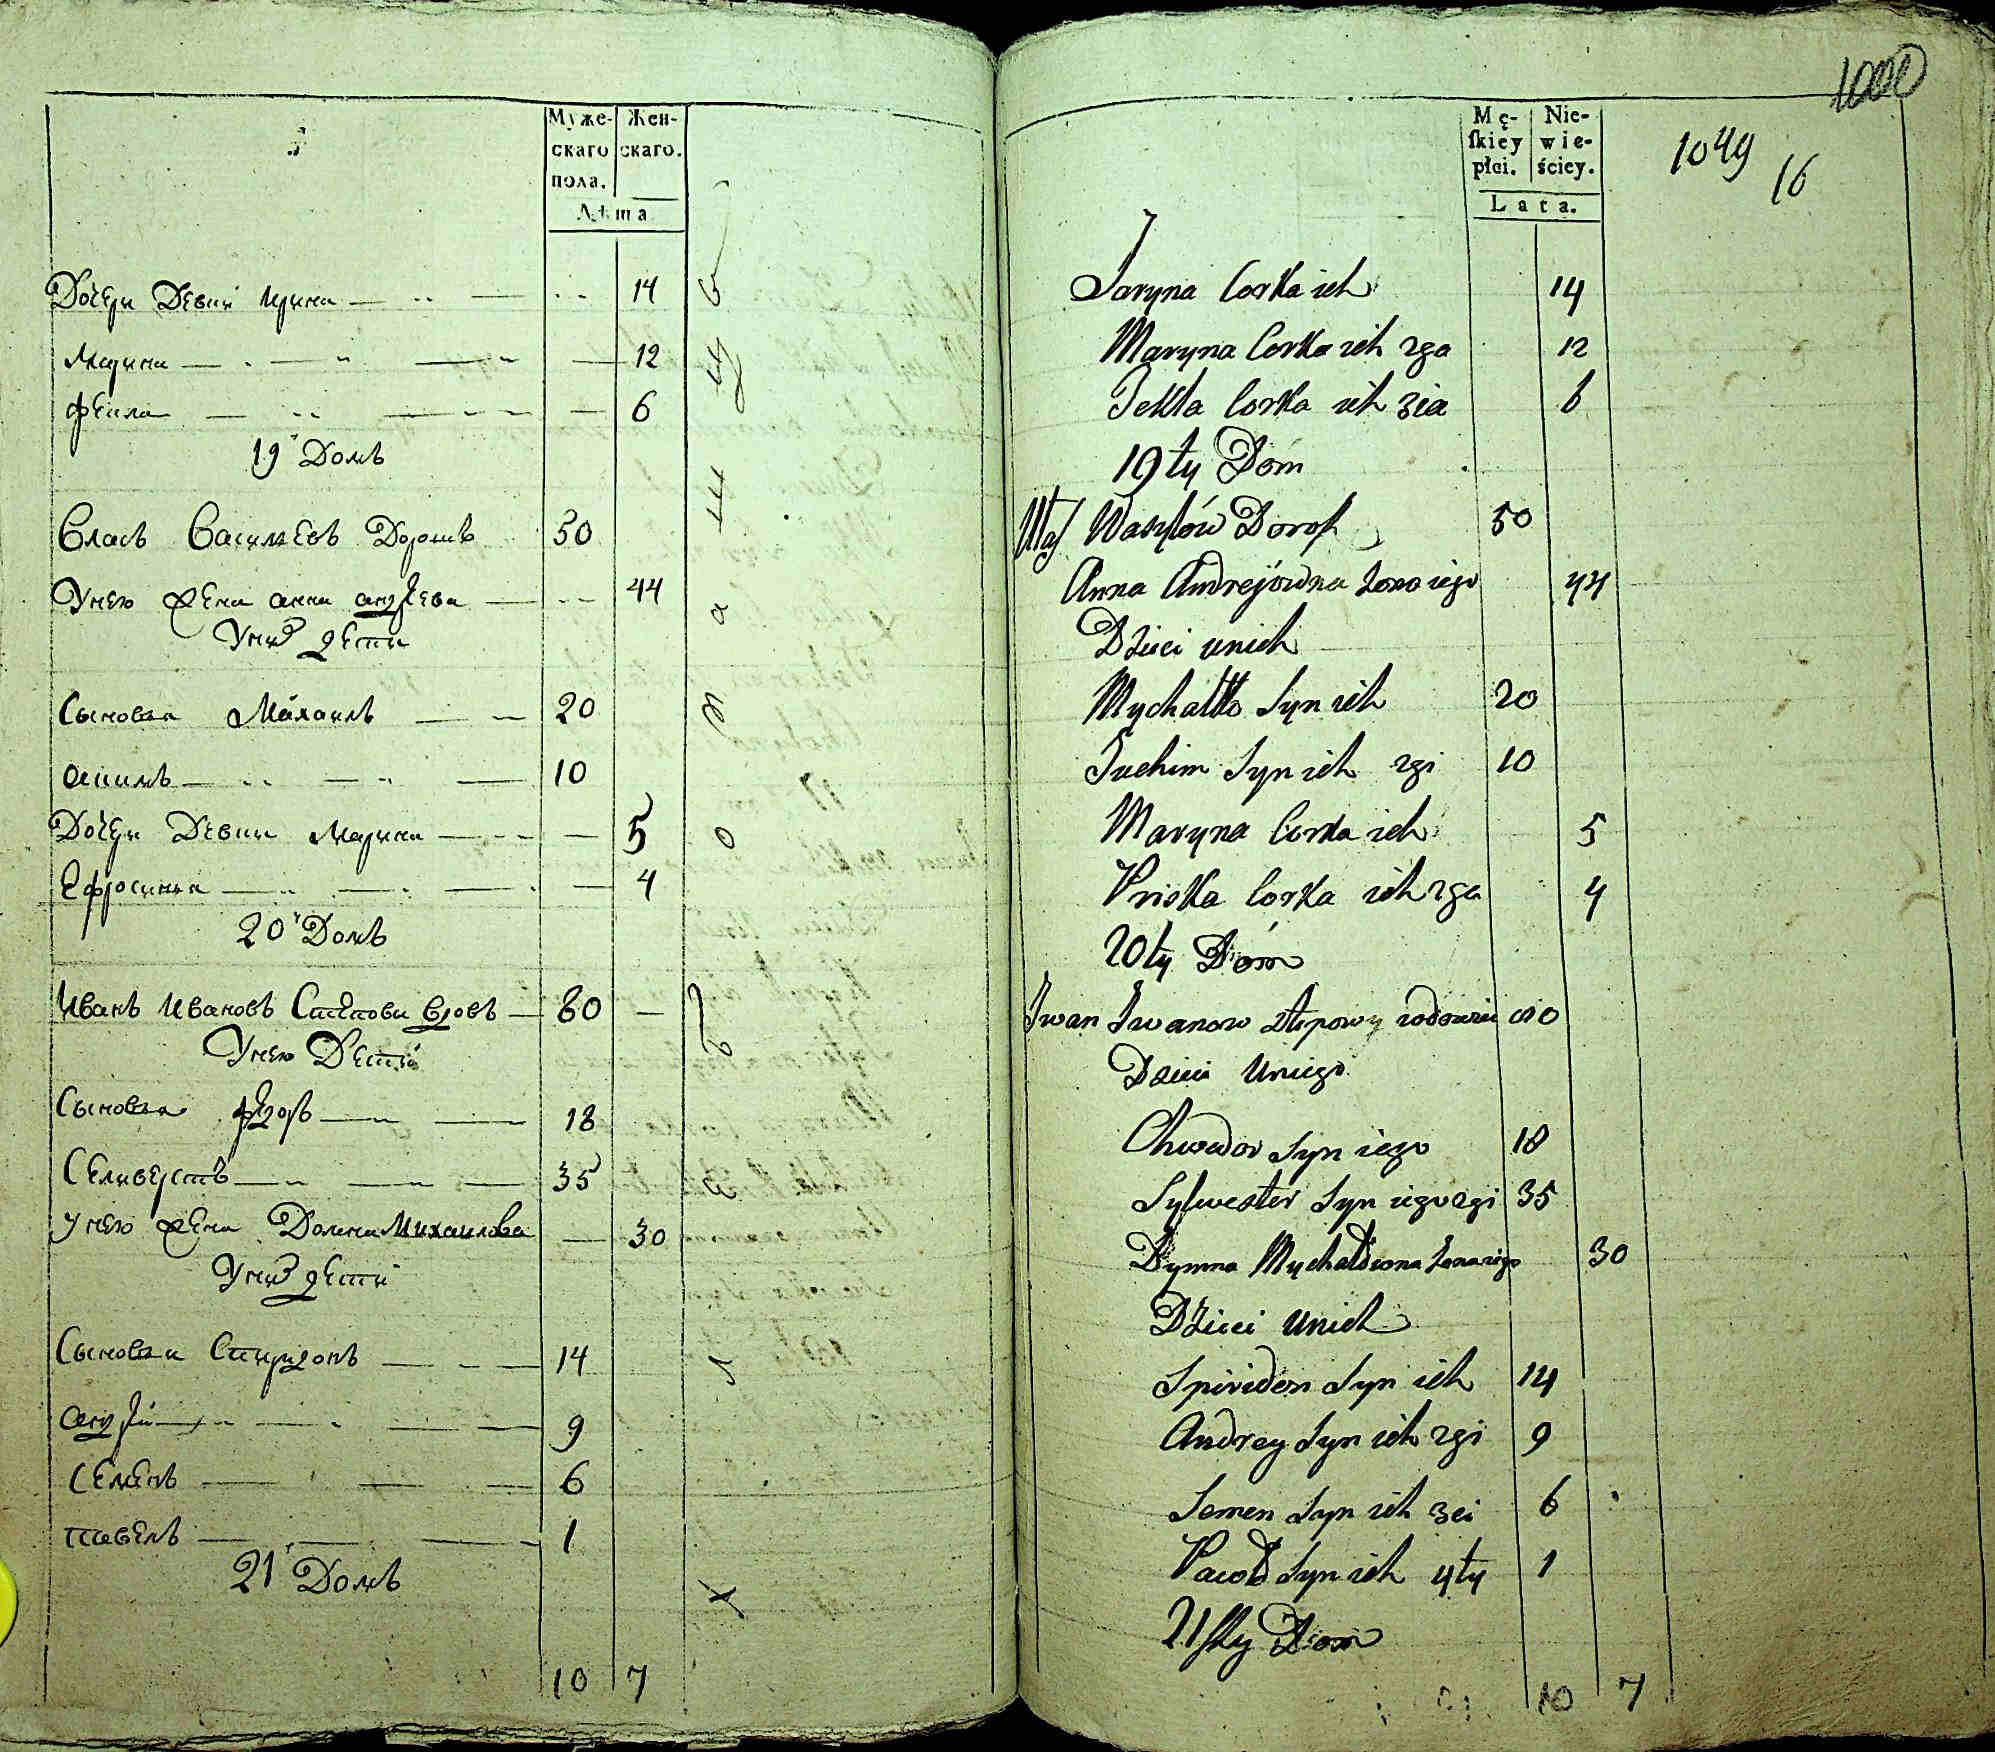 Муже-
скаго
пола.
Жен-
скаго.
Лѣта
Дочери Девки Ирина 14
Марина 12
Фекла 6
19 Домъ
Власъ Васильевъ Дорошъ 50
У него жена анна андреева 44
У них дети
Сыновья Михаилъ 20
акимъ 10
Дочери Девки Марина 5
Ефросинья 4
20 Домъ
Иванъ Ивановъ вдовъ 80
У него Дети
Сыновья Федоръ 18
Селиверстъ 35
У него жена Домна Михаилова 30
У них дети
Сыновья Спиридонъ 14
андрей 9
Семенъ 6
павелъ 1
21 Домъ
10 7
1000
1049
16
Mę-
skiey
płci.
Nie-
wie-
ściey.
Lata.
Jaryna Corka ich 14
Maryna Corka ich 2ga 12
Tekla Corka ich 3cia 6
19ty Dóm
Wasylów Dorosz 50
Anna Andrejówna Zona iego 44
Dzieci unich
Mychałło Syn ich 20
Juchim Syn ich 2gi 10
Maryna Corka ich 5
Priska Corka ich 2ga 4
20ty Dóm
Iwan Iwanow 80
Dzieci Uniego
Chwedor Syn iego 18
Sylwester Syn iego 2gi 35
Dymna Mychałowna Zona iego 30
Dzieci Unich
Spiridon Syn ich 14
Andrey Syn ich 2gi 9
Semen Syn ich 3ci 6
Paweł Syn ich 4ty 1
21szy Dom
10 7